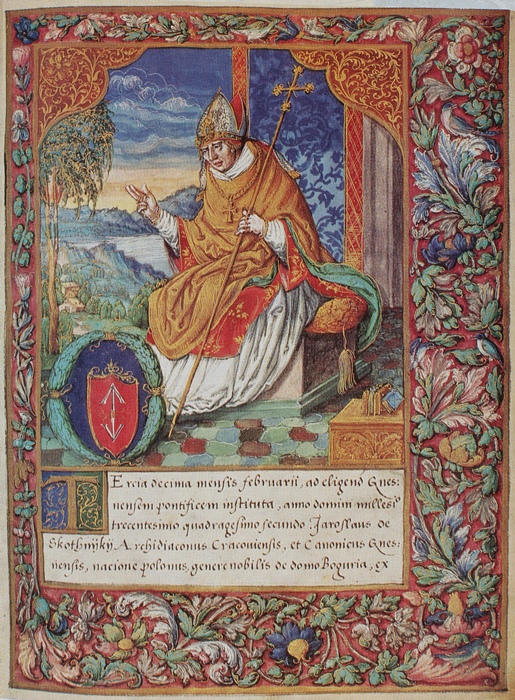 Tercia decima mensis februarii, ad eligend Gnes:
nensem pontificem instituta, anno domini milles⁰
trecentesimo quadragesimo secundo Jaroslaus de
Skothnÿkÿ Archidiaconus Cracoviensis, et Canonicus Gnes:
nensis, nacione polonus, genere nobilis de domo Boguria, ex